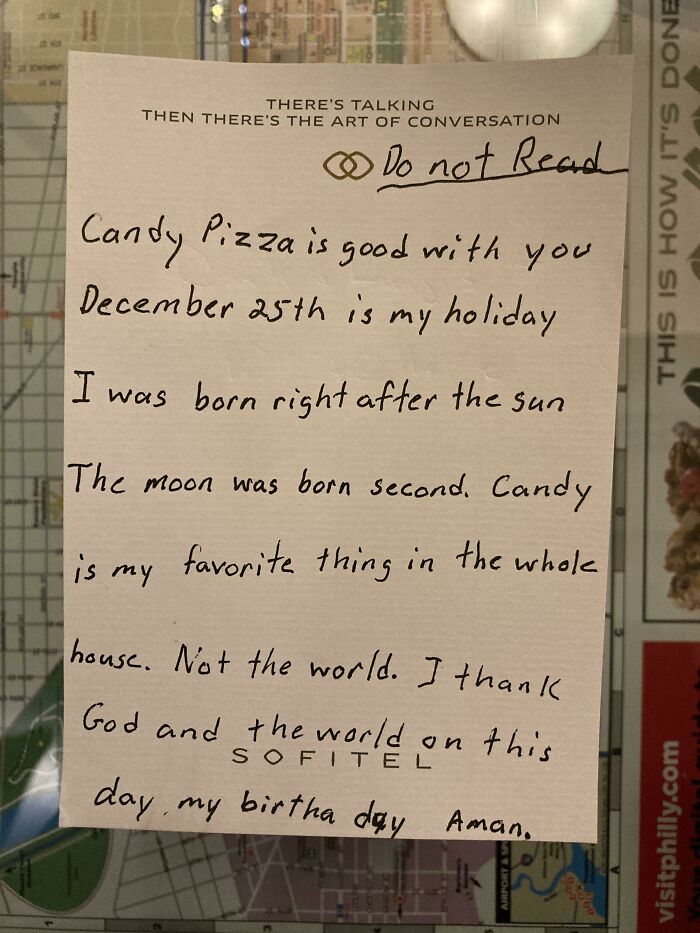 THERE'S TALKING
THEN THERE'S THE ART OF CONVERSATION
Do not Read
Candy Pizza is good with you
December 25th is my holiday
I was born right after the sun
The moon was born second. Candy
is my favorite thing in the whole
house. Not the world. I thank
God and the world on this
SOFITEL
day my birtha day Aman.
THIS IS HOW IT'S DONE
visitphilly.com
AIRPORT & S